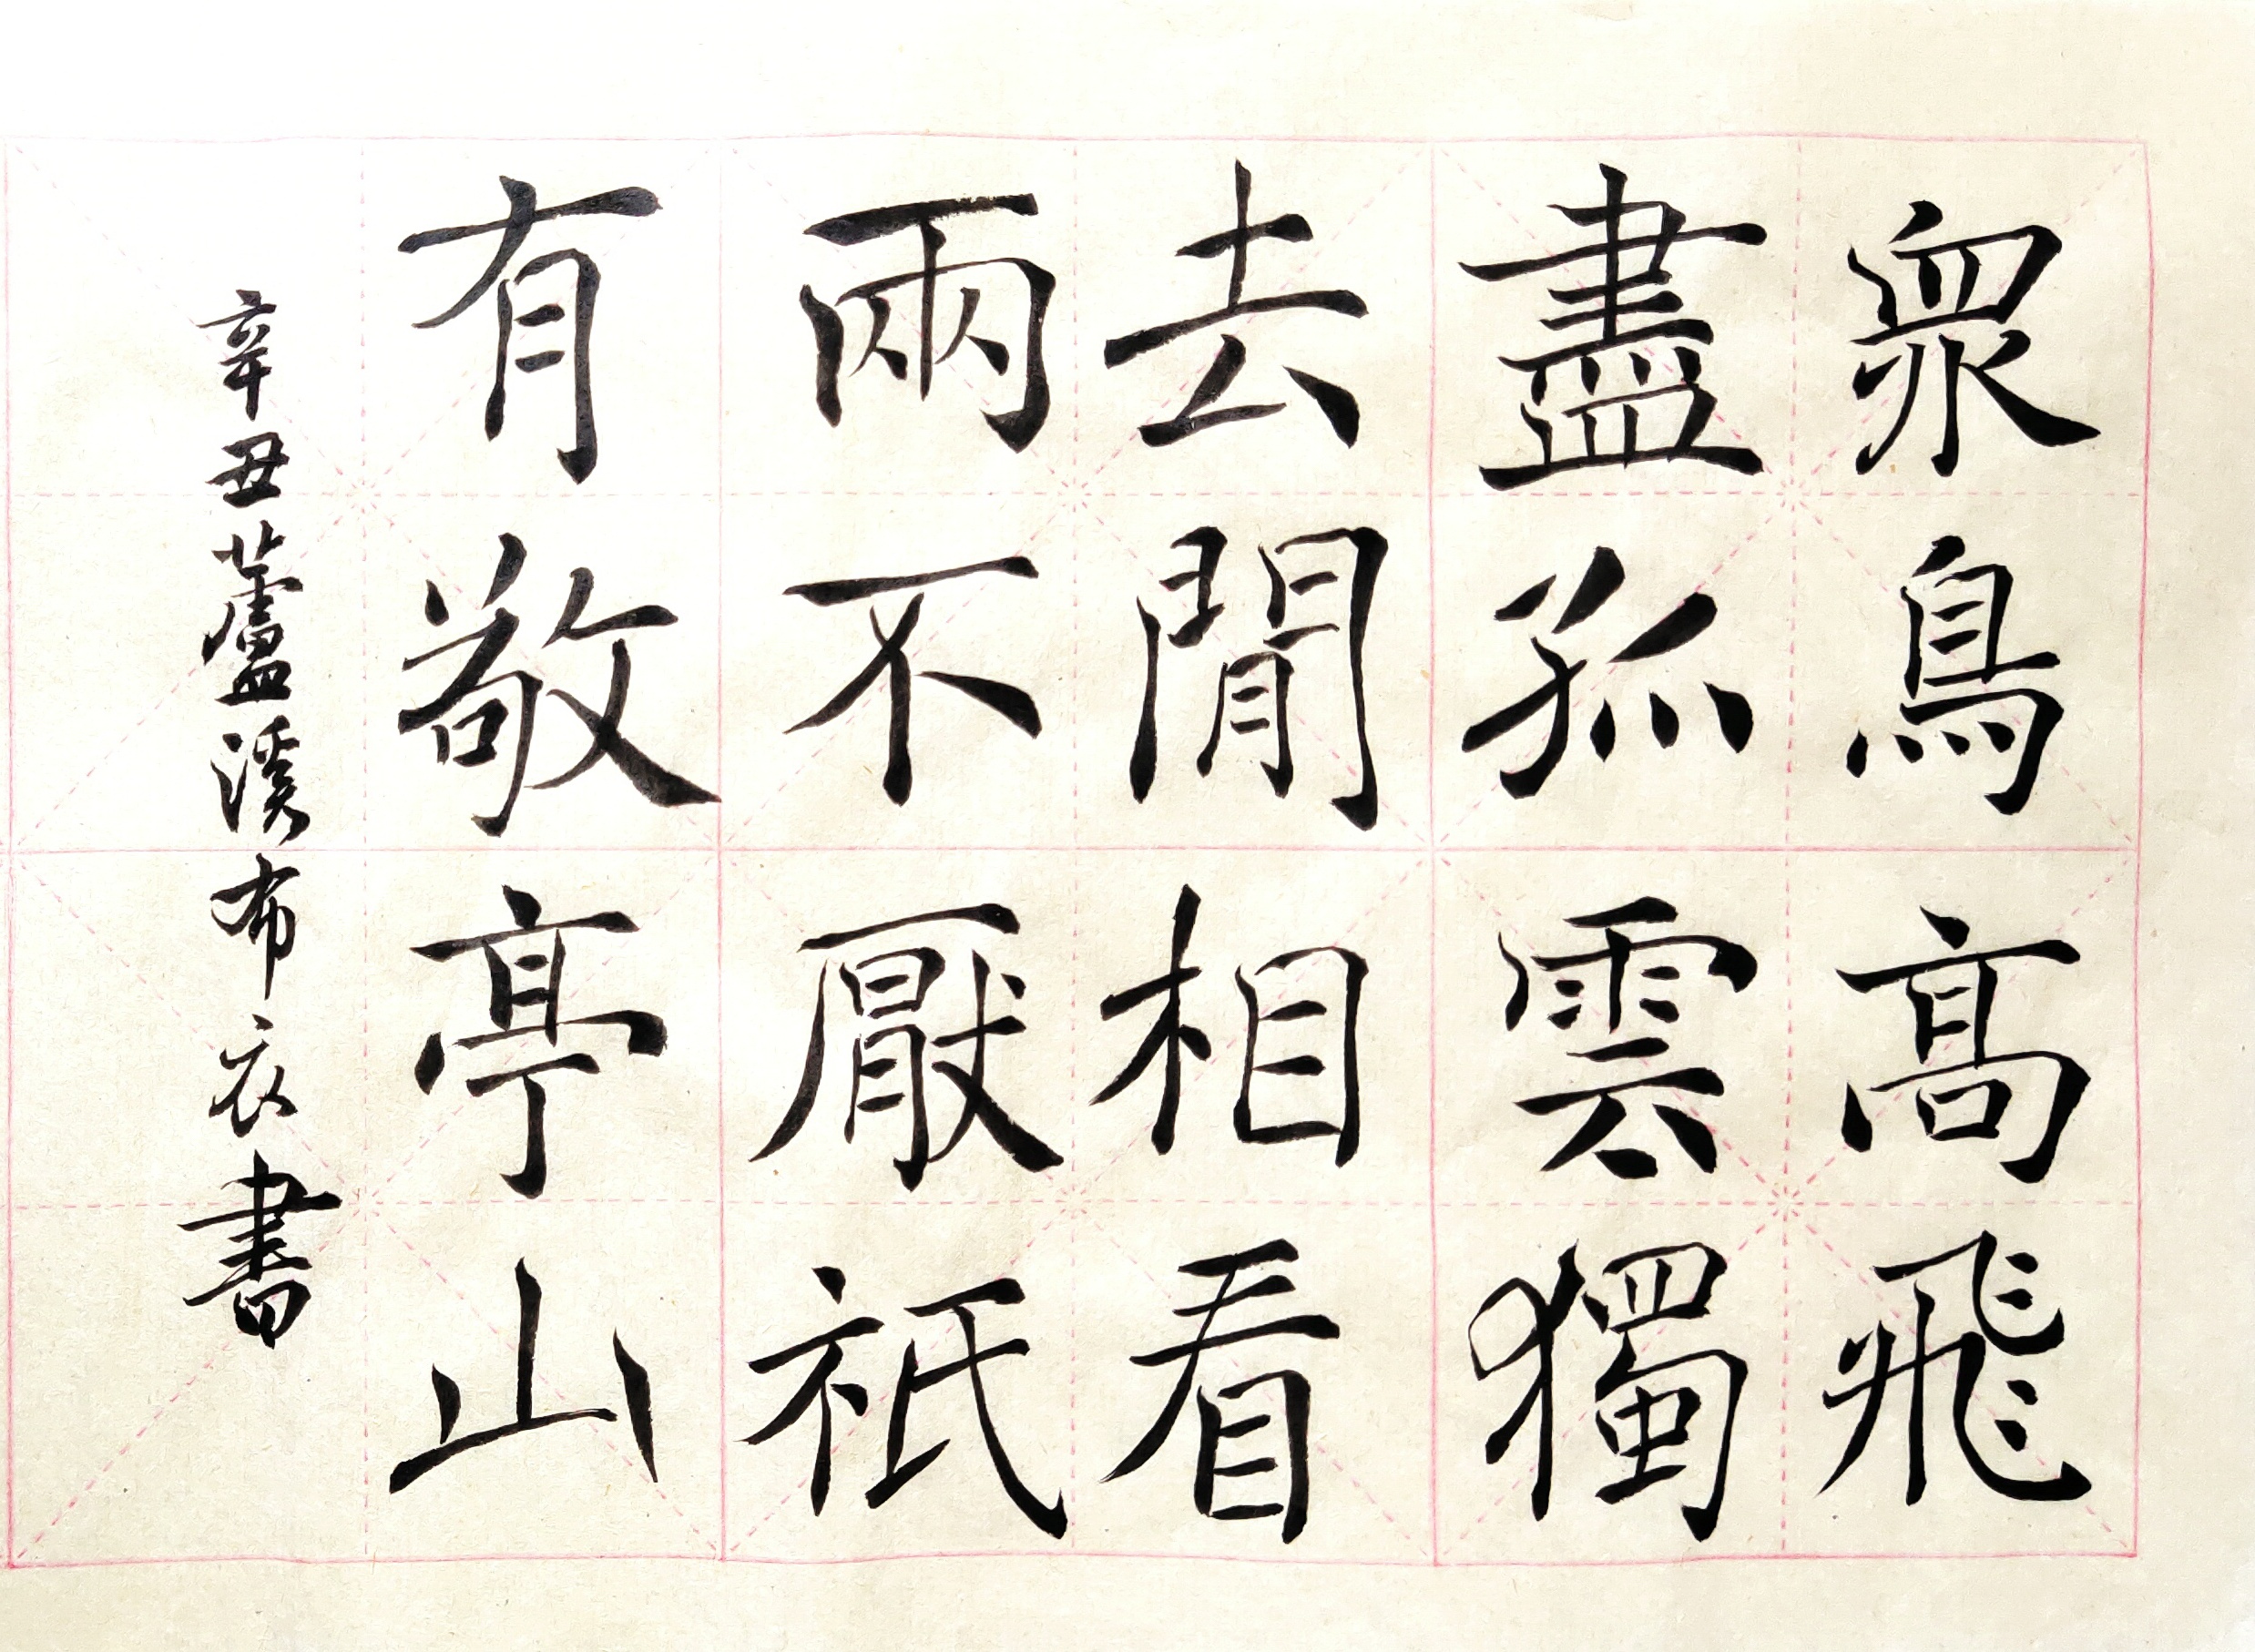 眾鳥高飛
盡孤雲獨
去閒相看
兩不厭祗
有敬亭山
辛丑蘆溪布衣書